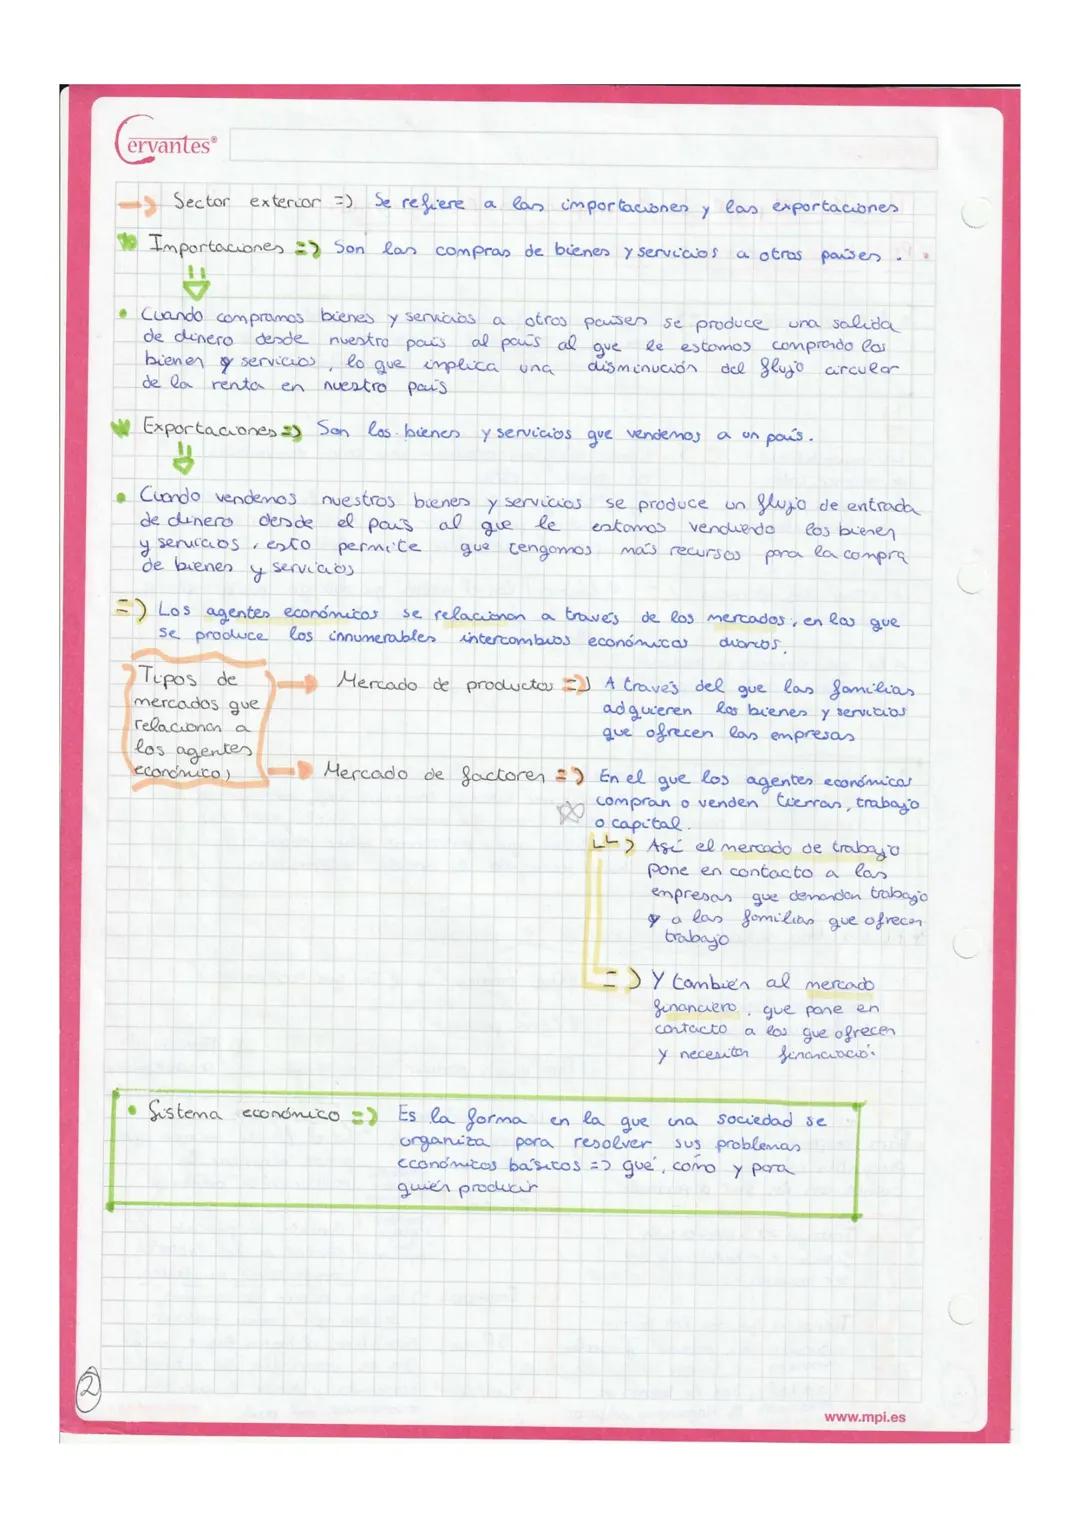 Cervantes®
→ Sector exterior => Se refiere a las importaciones y las exportaciones
Importaciones => Son las compras de bienes y servicios a otros países.
• Cuando compramos bienes y servicios a otros países se produce una salida
de dinero desde nuestro país al país al que le estamos comprando los
bienes y servicios, lo que implica una disminución del flujo circular
de la renta en nuestro país
Exportaciones => Son los bienes y servicios que vendemos a un país.
• Cuando vendemos nuestros bienes y servicios se produce un flujo de entrada
de dinero desde el país al que le estamos vendiendo los bienes
y servicios, esto permite que tengamos más recursos para la compra
de bienes y servicios
=> Los agentes económicos se relacionan a través de los mercados, en los que
se produce los innumerables intercambios económicos diarios.
Tipos de
mercados que
relacionan a
los agentes
económicos
→ Mercado de productos => A través del que las familias
adquieren los bienes y servicios
que ofrecen las empresas
→ Mercado de factores => En el que los agentes económicos
compran o venden tierras, trabajo
o capital.
Así el mercado de trabajo
pone en contacto a las
empresas que demandan trabajo
y a las familias que ofrecen
trabajo
=> Y también al mercado
financiero, que pone en
contacto a los que ofrecen
y necesitan financiación
• Sistema económico => Es la forma en la que una sociedad se
organiza para resolver sus problemas
económicos básicos => qué, cómo y para
quién producir
2
www.mpi.es